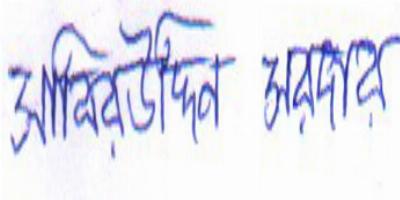 আমিরউদ্দিন সরদার